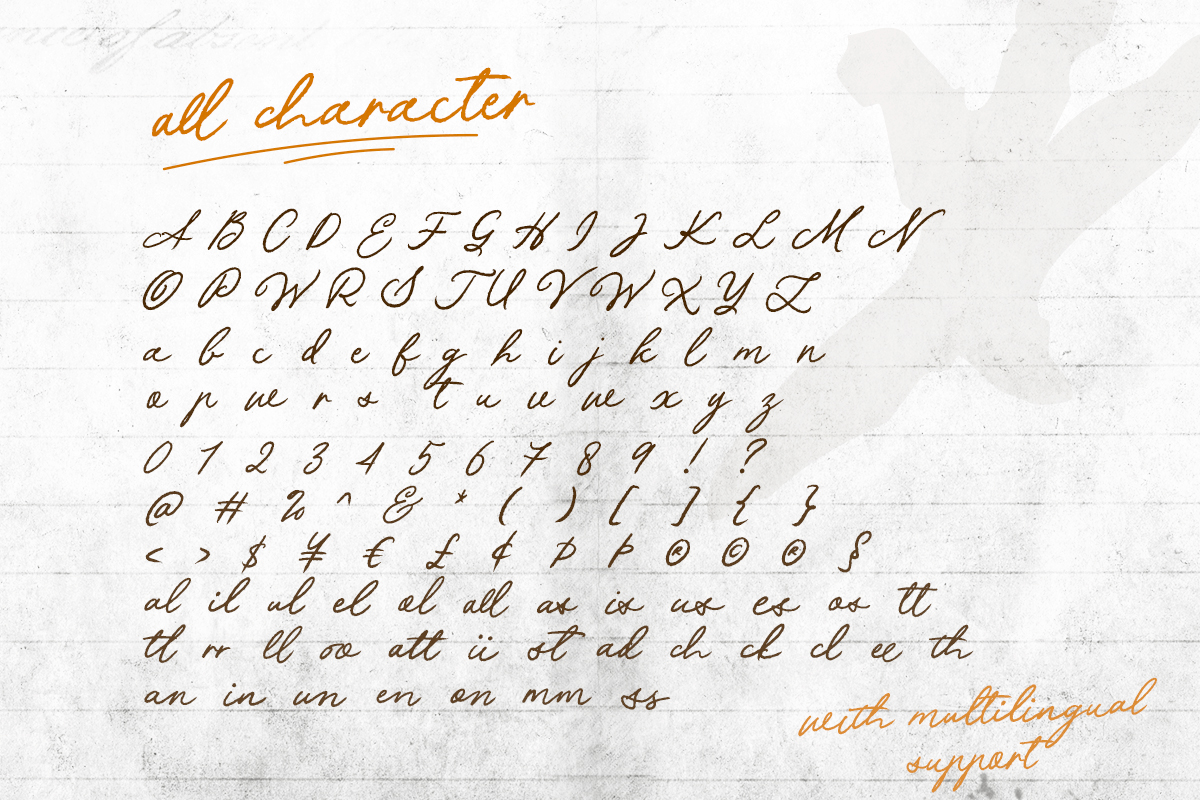 all character
A B C D E F G H I J K L M N
O P W R S T U V W X Y Z
a b c d e f g h i j k l m n
o p w r s t u v w x y z
0 1 2 3 4 5 6 7 8 9 ! ?
@ # % ^ & * ( ) [ ] { }
< > $ ¥ € £ ¢ Þ Þ ® © ® §
al il ul el ol all as is us es os tt
tl rr ll oo att ii st ad ch ck cl ee th
an in un en on mm ss
with multilingual
support